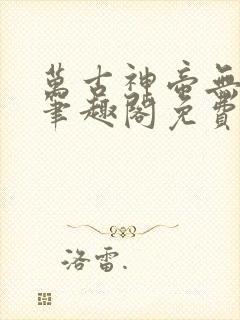 萬古神帝無
筆趣閣免費
洛雷.